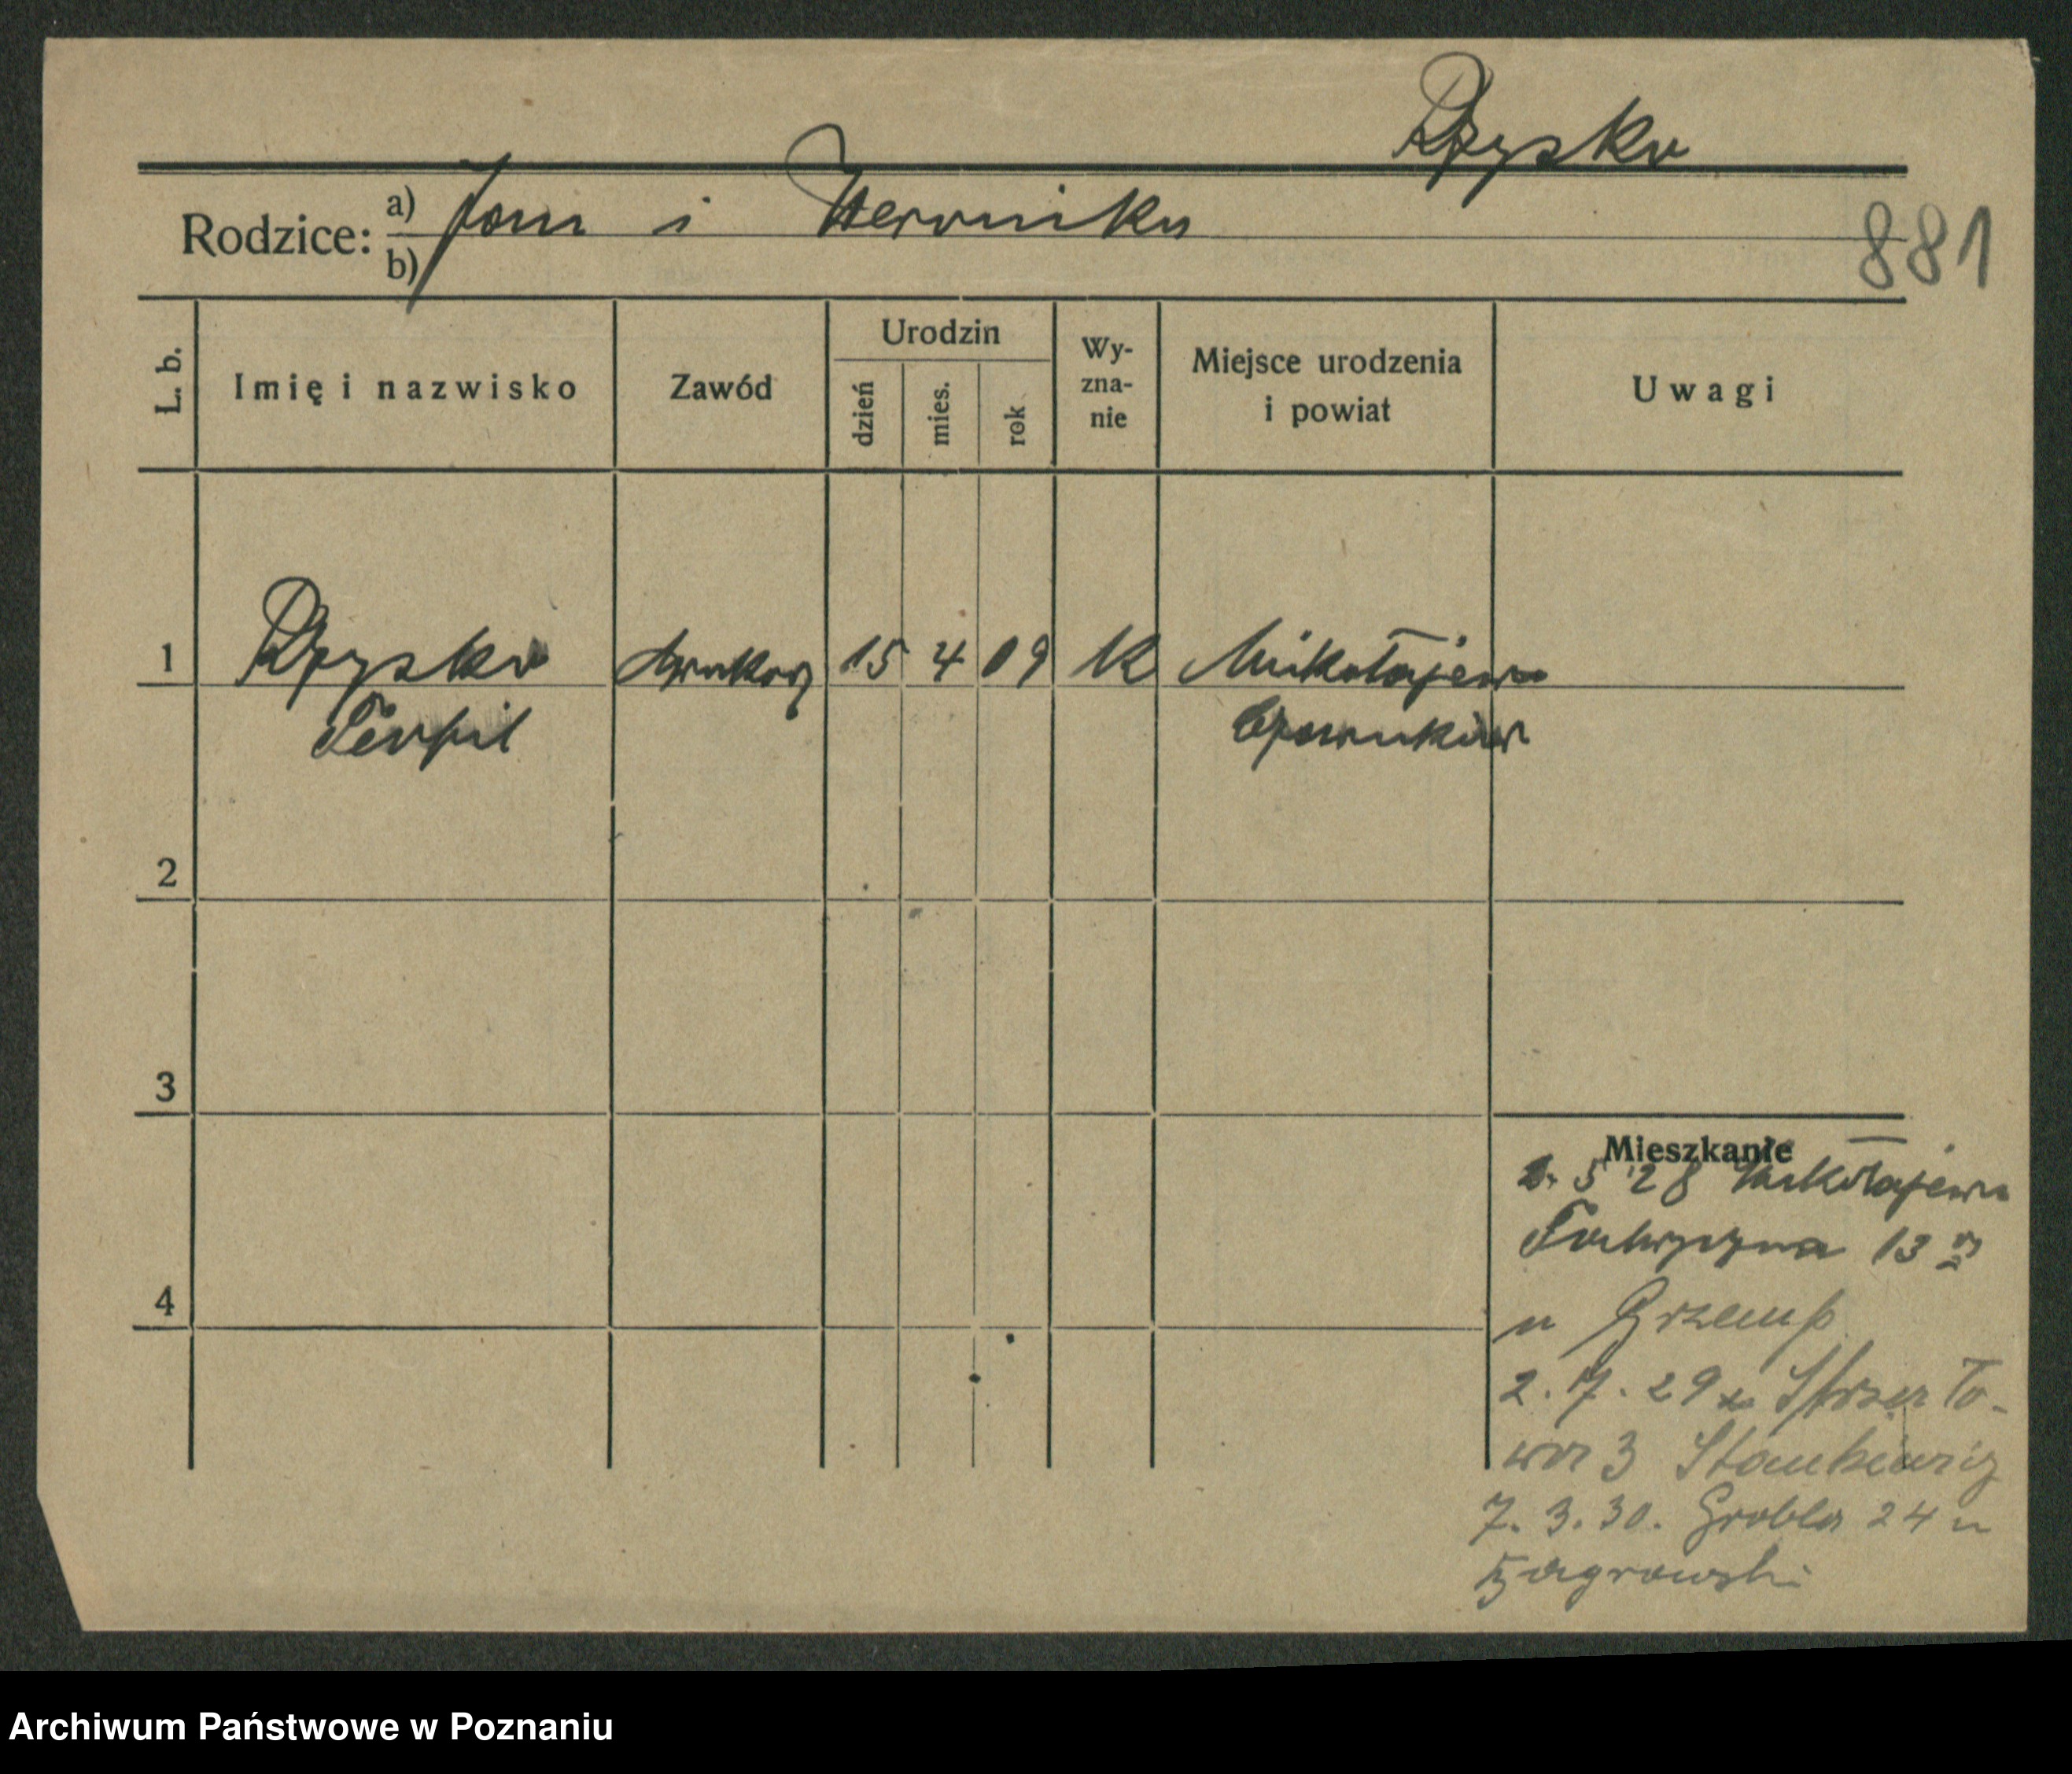 Rzysko
Rodzice: a) Jan i Weronika
b)
881
L. b.
Imię i nazwisko
Zawód
Urodzin
dzień
mies.
rok
Wy-
zna-
nie
Miejsce urodzenia
i powiat
Uwagi
1 Rzysko drukarz 15 4 09 K Mikołajewo
Teofil Czarnków
2
3
4
Mieszkanie
5 28 Mikołajewo
13
u Grzemp
2. 7. 29
3 Stankiewicz
7. 3. 30. Grobla 24 u
Zagrowski
Archiwum Państwowe w Poznaniu